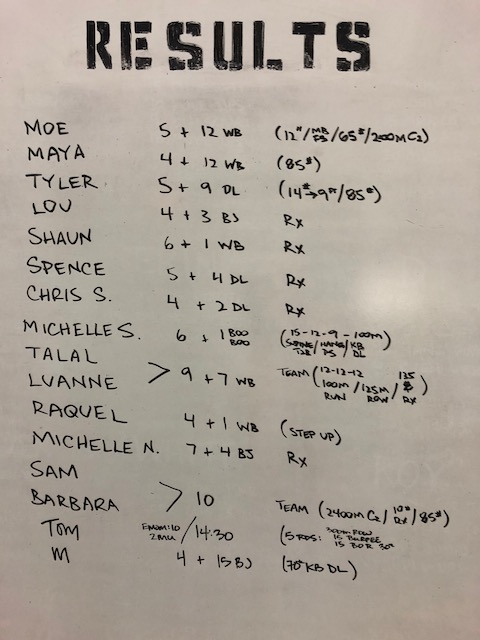 RESULTS
MOE 5 + 12 WB (12#/MB FS/65#/200M C2)
MAYA 4 + 12 WB (85#)
TYLER 5 + 9 DL (14#→9FT/85#)
LOU 4 + 3 BJ Rx
SHAUN 6 + 1 WB Rx
SPENCE 5 + 4 DL Rx
CHRIS S. 4 + 2 DL Rx
MICHELLE S. 6 + 1 BOO BOO (15-12-9-100m)
/HANG/KB
PS/ DL
TALAL
LUANNE > 9 + 7 WB TEAM (12-12-12 / 135#)
100M RUN / 125M ROW / Rx
RAQUEL 4 + 1 WB (STEP UP)
MICHELLE N. 7 + 4 BJ Rx
SAM
BARBARA > 10 TEAM (2400M C2/10# Rx/85#)
TOM EMOM:10 2MU /14:30 (5 RDS: 300m ROW
15 BURPEE
15 BOR
M 4 + 15 BJ (70# KB DL)